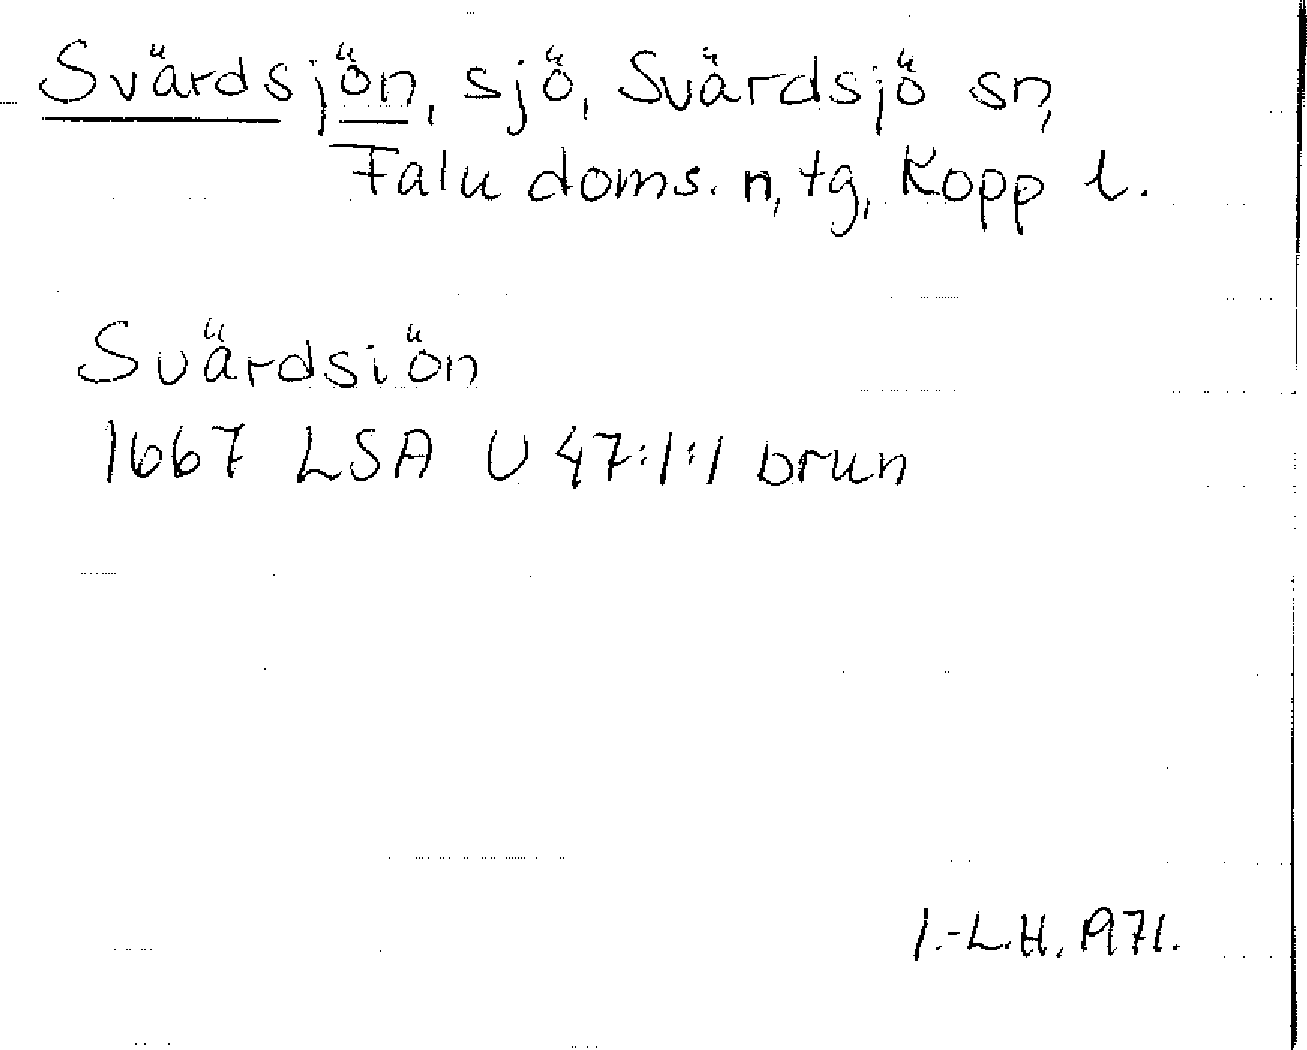 Svärdsjön, sjö, Svärdsjö sn,
Falu doms. n, tg, Kopp l.
Svärdsiön
1667 LSA U 47:1:1 brun
I.-L.H. 1971.